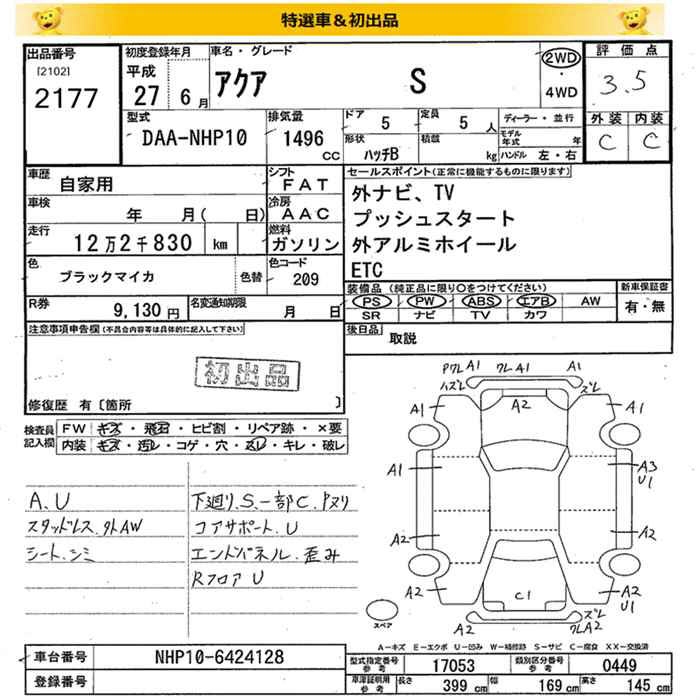 特選車＆初出品
出品番号
[2102]
2177
初度登録年月
平成
27 6月
車名・グレード
アクア S
2WD
・
4WD
評価点
3.5
外装 内装
C C
型式
DAA-NHP10
排気量
1496
CC
ドア 5
定員 5 人
形状 ハッチB
積載 kg
ディーラー・並行
モデル年式 年
ハンドル 左・右
車歴 自家用
シフト FAT
車検 年 月( 日)
冷房 AAC
走行 12万2千830 km
燃料 ガソリン
色 ブラックマイカ 色替
色コード 209
R券 9,130円
名変通知期限 月 日
セールスポイント(正常に機能するものに限ります)
外ナビ、TV
プッシュスタート
外アルミホイール
ETC
装備品（純正品に限り○をつけてください）
新車保証書
PS PW ABS エアB AW
SR ナビ TV カワ
有・無
後日品 取説
注意事項申告欄(不具合内容等は具体的に記入して下さい)
初出品
修復歴 有〔箇所 〕
検査員記入欄
FW キズ・飛石・ヒビ割・リペア跡・×要
内装 キズ・汚レ・コゲ・穴・スレ・キレ・破レ
A.U
スタッドレス.外AW
シート.シミ
下廻り.S.一部C.Pヌリ
コアサポート.U
エンドパネル.歪み
Rフロア U
PクレA1 クレA1 A1
ハズレ ズレ
A1 A2 A1
A1 A3
U1
A2 A2
A2 C1 A2
U1
A2 ズレ
クレA2
スペア
A－キズ E－エクボ U－凹み W－補修跡 S－サビ C－腐食 XX－交換済
車台番号 NHP10-6424128
登録番号
型式指定番号参考 17053
類別区分番号参考 0449
車庫証明用参考 長さ 399 cm 幅 169 cm 高さ 145 cm